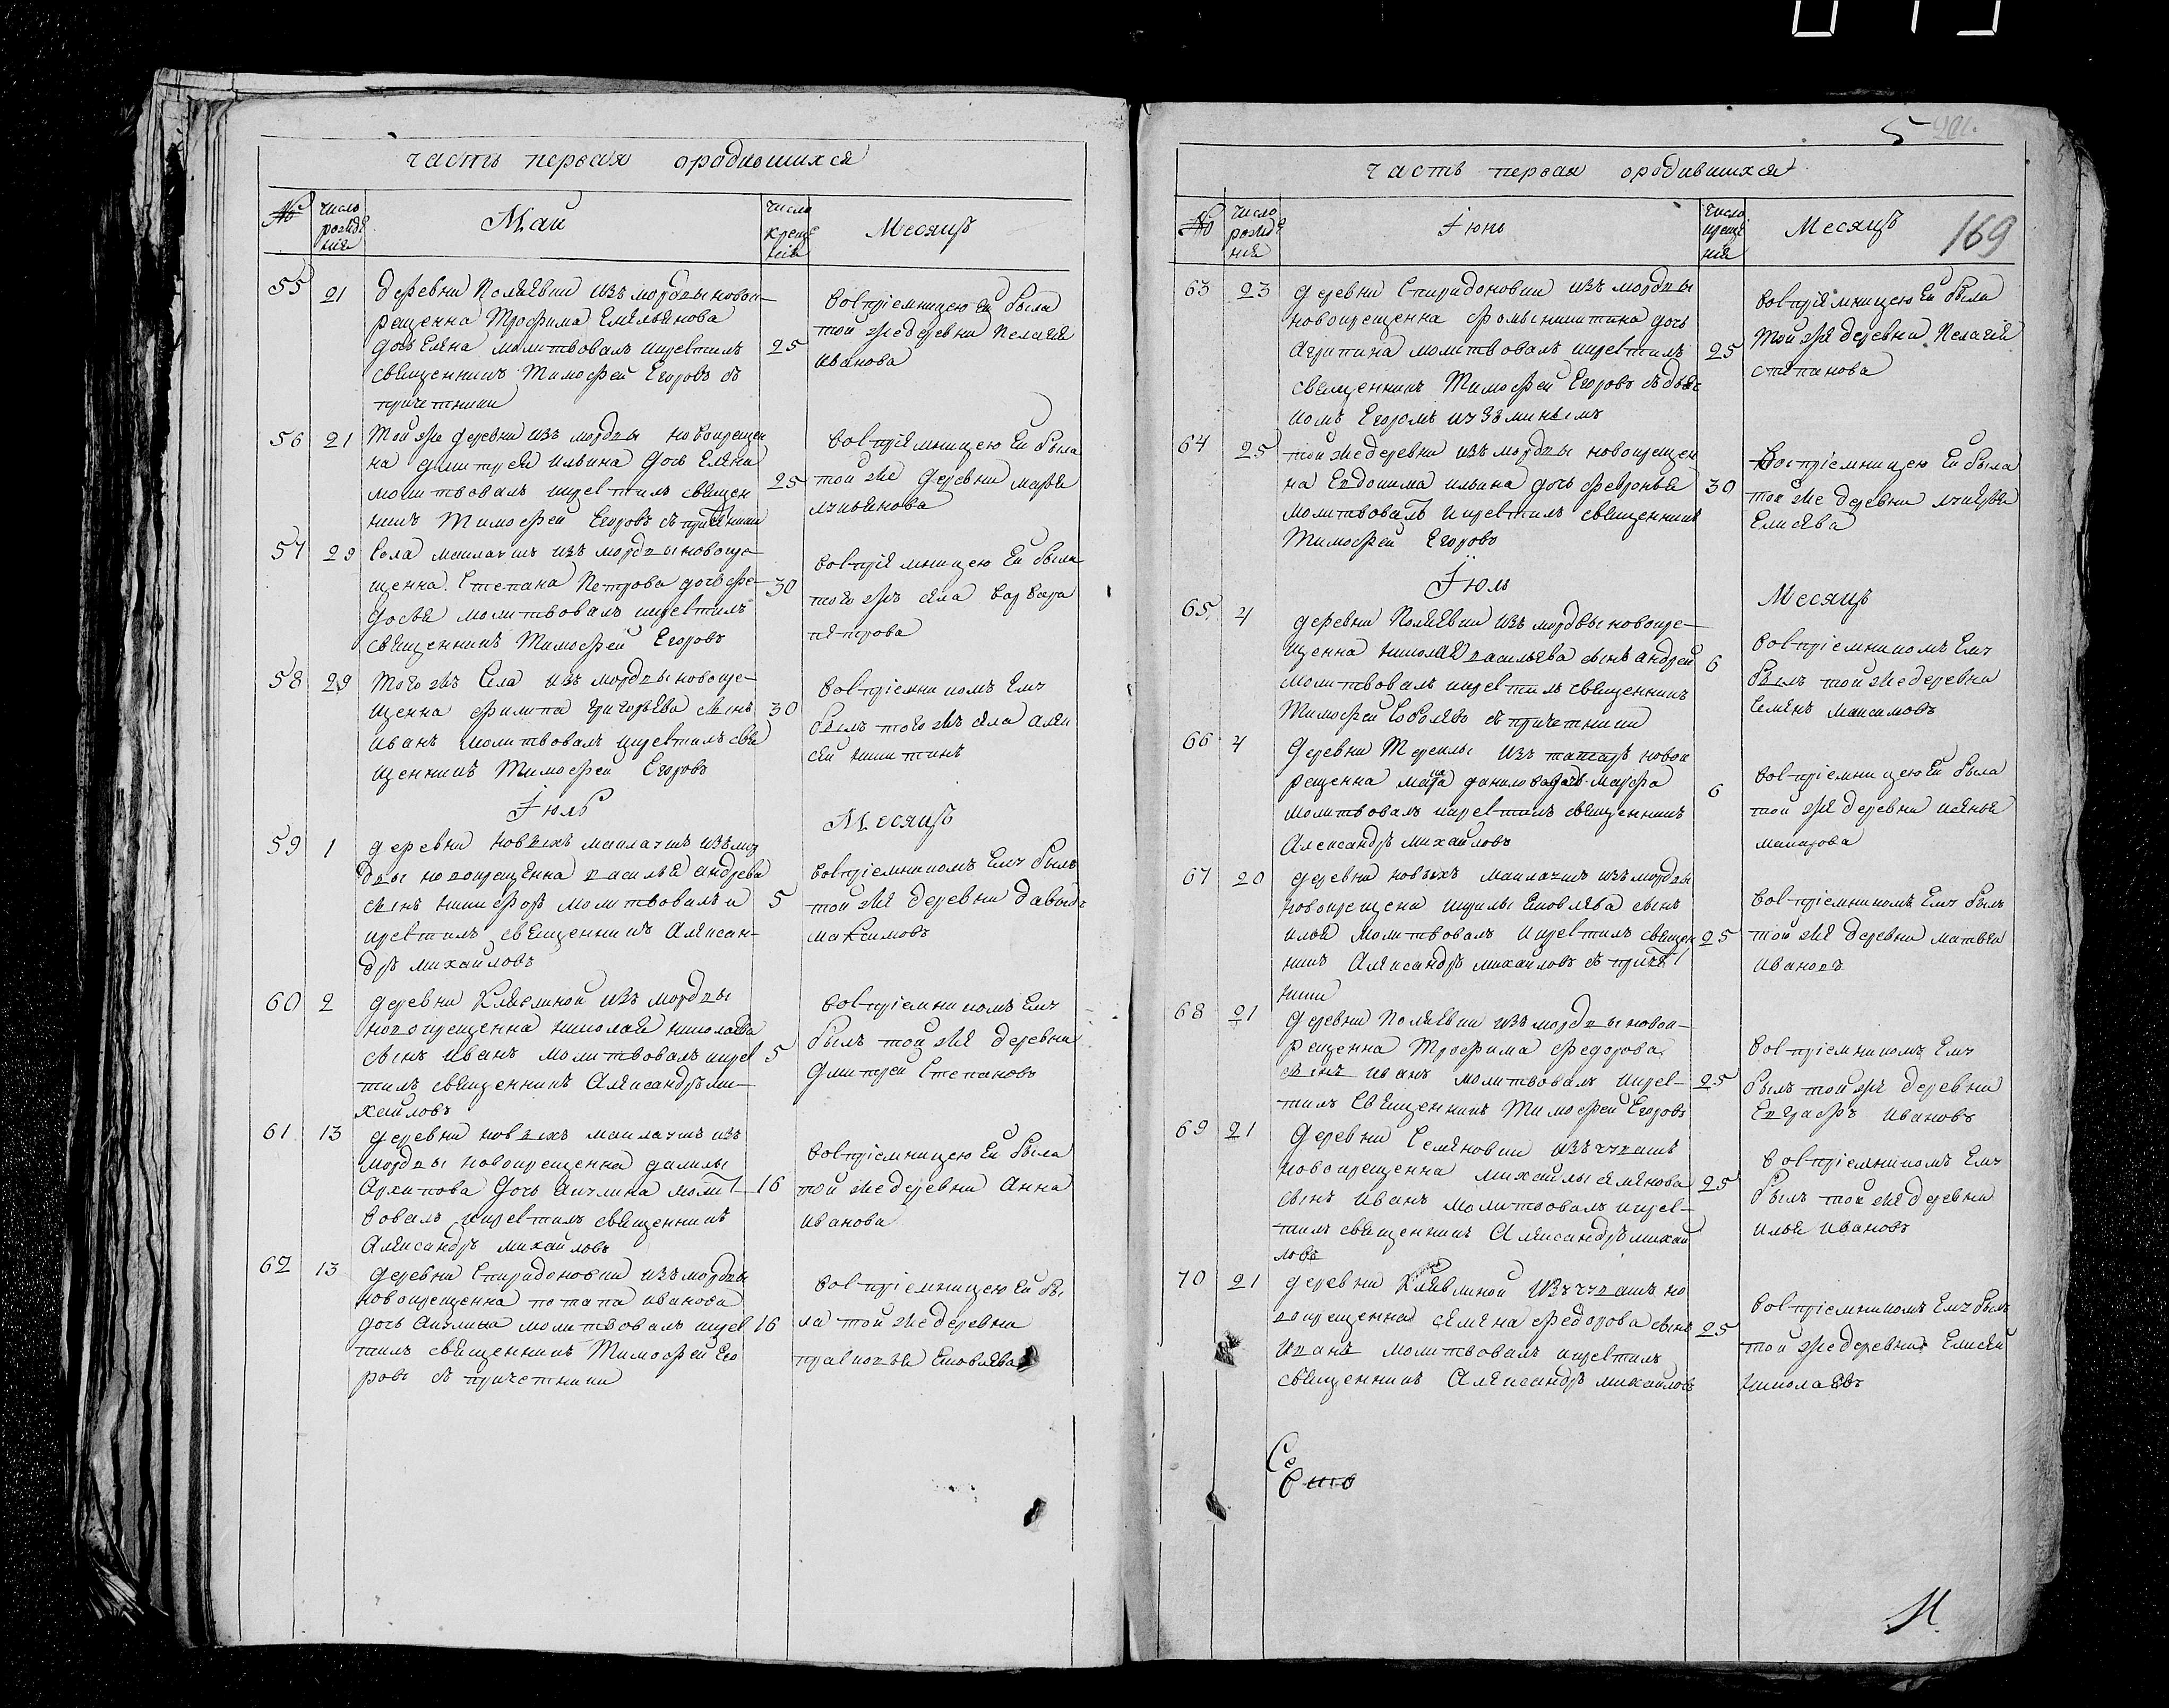 часть первая ородившихся
№ число рожде ния Май число креще нія Месяцъ
55 21 деревни Поляевки изъ мордвы новок
рещенна Трофима Емельянова
дочь Елена молитвовалъ икрестилъ 25
священникъ Тимофей Егоровъ съ
причетники
восприемницею ей была
той же деревни Пелагея
иванова
56 21 Той же деревни изъ мордвы новокрещен
на дмитрея ильина дочь Елена
молитвовалъ икрестилъ священ 25
никъ Тимофей Егоровъ съ причетники
восприемницею ей была
той же деревни марья
57 29 Села маклаушъ изъ мордвы новокре
щенна Степана Петрова дочь Фе 30
досья молитвовалъ икрестилъ
священникъ Тимофей Егоровъ
восприемницею ей была
того жъ села варвара
петрова
58 29 того жъ Села изъ мордвы новокре
щенна филипа григорьева сынъ 30
иванъ молитвовалъ икрестилъ свя
щенникъ Тимофей Егоровъ
восприемникомъ Ему
былъ того жъ села алек
сей никитинъ
Іюнь Месяцъ
59 1 деревни новыхъ маклаушъ изъ мор
двы новокрещенна василья андреева
сынъ никифоръ молитвовалъ и 5
крестилъ священникъ Алексан
дръ михайловъ
восприемникомъ Ему былъ
той же деревни давыдъ
максимовъ
60 2 деревни Клявлиной изъ мордвы
новокрещенна николая николаева
сынъ иванъ молитвовалъ икрес 5
тилъ священникъ Александръ ми
хайловъ
восприемникомъ Ему
былъ той же деревни
дмитрей Степановъ
61 13 деревни новыхъ маклаушъ изъ
мордвы новокрещенна данилы
Архипова дочь акулина молит 16
вовалъ икрестилъ священникъ
Александръ михайловъ
восприемницею Ей была
той же деревни Анна
иванова
62 13 деревни Спиридоновки изъ мордвы
новокрещенна потапа иванова
дочь акулина молитвовалъ икрес 16
тилъ священникъ Тимофей Его
ровъ съ причетники
восприемницею Ей бы
ла той же деревни
прасковья Яковлева
5
часть первая ородившихся
№ число рожде ния Іюнь число креще нія Месяцъ 169
63 23 деревни Спиридоновки изъ мордвы
новокрещенна фомы никитина дочь
агрипина молитвовалъ икрестилъ 25
священникъ Тимофей Егоровъ съ дьяч
комъ Егоромъ кузминымъ
восприемницею Ей была
той же деревни Пелагея
степанова
64 25 той же деревни изъ мордвы новокрещен
на Евдокима ильина дочь февронья 30
молитвовалъ икрестилъ священникъ
Тимофей Егоровъ
восприемницею Ей была
той же деревни лукерья
Елисеева
Іюль Месяцъ
65 4 деревни Поляевки изъ мордвы новокре
щенна николая васильева сынъ андрей 6
молитвовалъ икрестилъ священникъ
Тимофей Соболевъ съ причетники
восприемникомъ Ему
былъ той же деревни
Семенъ максимовъ
66 4 деревни Терсилы изъ татаръ новок
рещенна данилова дочь марфа 6
молитвовалъ икрестилъ священникъ
Александръ михайловъ
восприемницею Ей была
той же деревни ксенья
макарова
67 20 деревни новыхъ маклаушъ изъ мордвы
новокрещена кирилы Яковлева сынъ
илья молитвовалъ икрестилъ священ 25
никъ Александръ михайловъ съ причет
ники
восприемникомъ Ему былъ
той же деревни матвеи
Ивановъ
68 21 деревни Поляевки изъ мордвы новок
рещенна Трофима федорова
сынъ иванъ молитвовалъ икрес 25
тилъ Священникъ Тимофей Егоровъ
восприемникомъ Ему
былъ той же деревни
Евграфъ Ивановъ
69 21 деревни Семеновки изъ чувашъ
новокрещенна михайлы семенова 25
сынъ иванъ молитвовалъ икрес
тилъ священникъ Александръ михай
ловъ
восприемникомъ Ему
былъ той же деревни
илья ивановъ
70 21 деревни Клявлиной изъ чувашъ но
вокрещенна семена федорова сынъ 25
Иванъ молитвовалъ икрестилъ
священникъ Александръ михайловъ
восприемникомъ Ему былъ
той же деревни Елисей
николаевъ